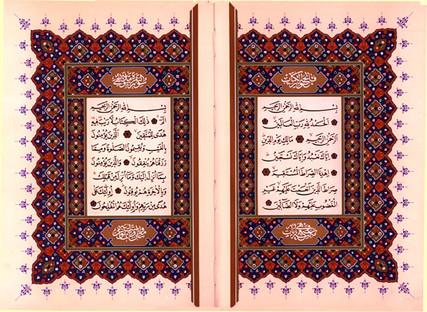 بِسْمِ اللهِ الرَّحْمٰنِ الرَّحِيمِ
اَلْحَمْدُ لِلهِ رَبِّ الْعَالَمِينَ
اَلرَّحْمٰنِ الرَّحِيمِ مَالِكِ يَوْمِ الدِّينِ
اِيَّاكَ نَعْبُدُ وَاِيَّاكَ نَسْتَعِينُ
اِهْدِنَا الصِّرَاطَ الْمُسْتَقِيمَ
صِرَاطَ الَّذِينَ اَنْعَمْتَ عَلَيْهِمْ غَيْرِ
الْمَغْضُوبِ عَلَيْهِمْ وَلَا الضَّالِّينَ
بِسْمِ اللهِ الرَّحْمٰنِ الرَّحِيمِ
الٓمٓ ذٰلِكَ الْكِتَابُ لَا رَيْبَ فِيهِ
هُدًى لِلْمُتَّقِينَ اَلَّذِينَ يُؤْمِنُونَ
بِالْغَيْبِ وَيُقِيمُونَ الصَّلٰوةَ وَمِمَّا
رَزَقْنَاهُمْ يُنْفِقُونَ وَالَّذِينَ يُؤْمِنُونَ
بِمَا اُنْزِلَ اِلَيْكَ وَمَا اُنْزِلَ مِنْ قَبْلِكَ
وَبِالْاٰخِرَةِ هُمْ يُوقِنُونَ اُولٰئِكَ عَلٰى
هُدًى مِنْ رَبِّهِمْ وَاُولٰئِكَ هُمُ الْمُفْلِحُونَ